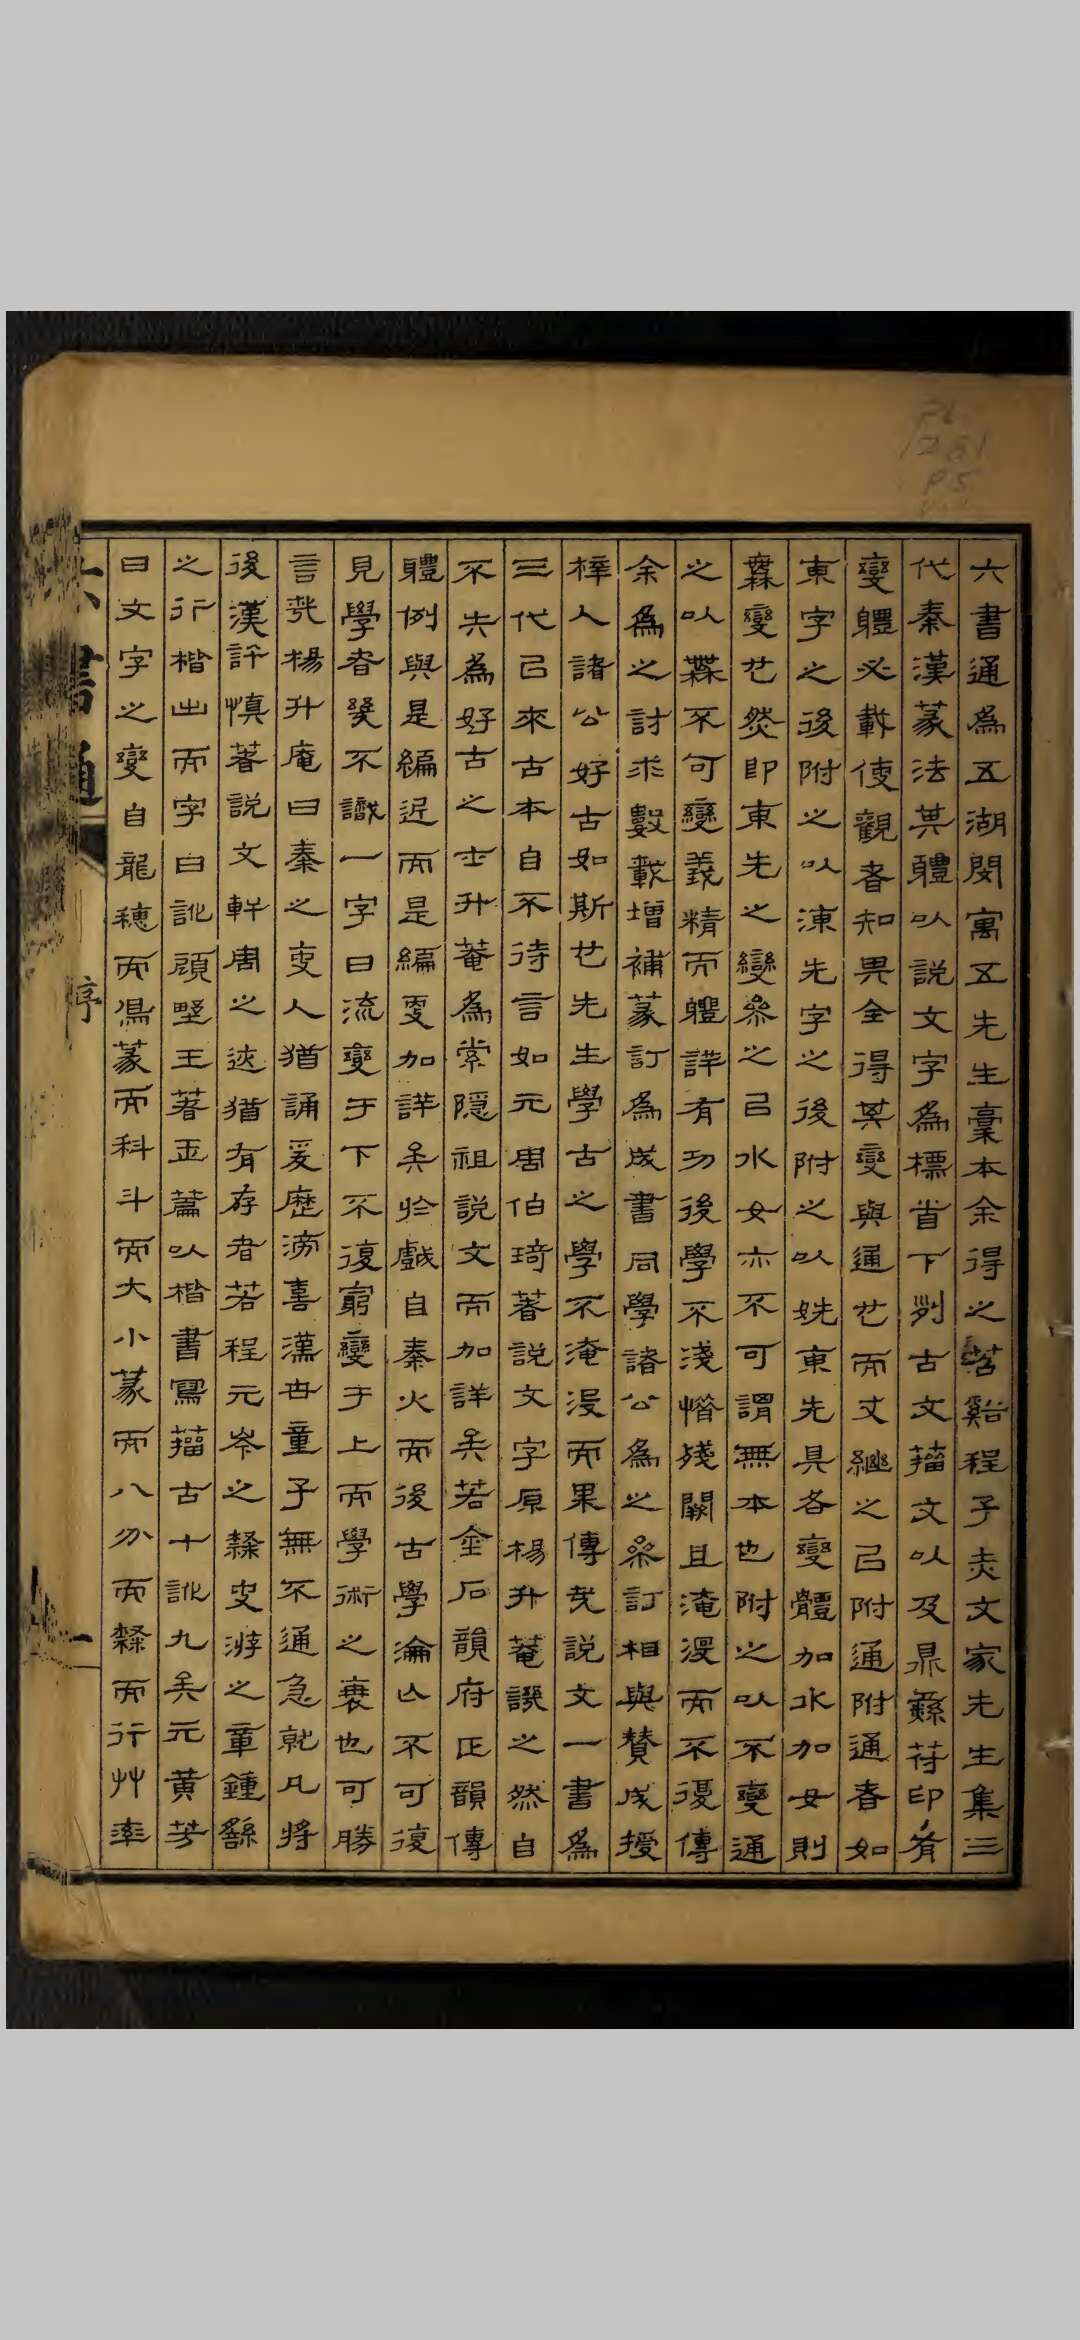 六書通為五湖閔寓五先生稾本余得之苕谿程子赤文家先生集三
代秦漢篆法其體以説文字為標首下列古文籀文以及鼎彝苻印有
變體必載使觀者知異仝得其變與通也而文繼之己附通附通者如
東字之後附之以涷先字之後附之以姺東先具各變體加水加女則
變也然即東先之變叅之己水女亦不可謂無本也附之以不變通
之以不可變義精而體詳有功後學不淺惜殘闕且淹沒而不優傳
余為之討求數載增補篆訂為成書同學諸公為之叅訂相與賛成授
梓人諸公好古如斯也先生學古之學不淹沒而果傳矣説文一書為
三代己來古本自不待言如元周伯琦著説文字原楊升菴譔之然自
不失為好古之士升菴為索隱祖説文而加詳矣若金石韻府正韻傳
體例與是編近而是編更加詳矣於戲自秦火而後古學淪亾不可復
見學者幾不識一字曰流變于下不復窮變于上而學術之衰也可勝
言㢤楊升庵曰秦之吏人猶誦爰歷滂喜漢世童子無不通急就凡將
後漢許慎著説文輧周之遊猶有存者若程元岑之隸史游之章鍾繇
之行楷出而字日訛顧野王著玉篇以楷書寫籀古十訛九矣元黄芳
曰文字之變自龍穗而鳥篆而科斗而大小篆而八分而隸而行艸率
六書通
序
一
PL
1281
P5